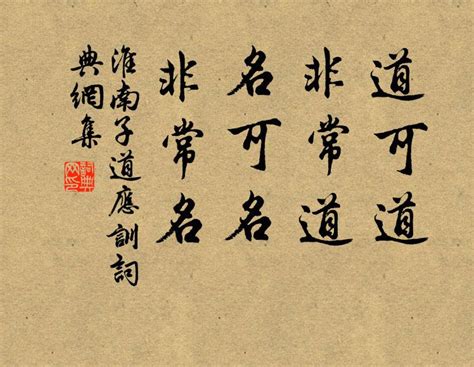 道可道
非常道
名可名
非常名
淮南子道應訓詞
典網集